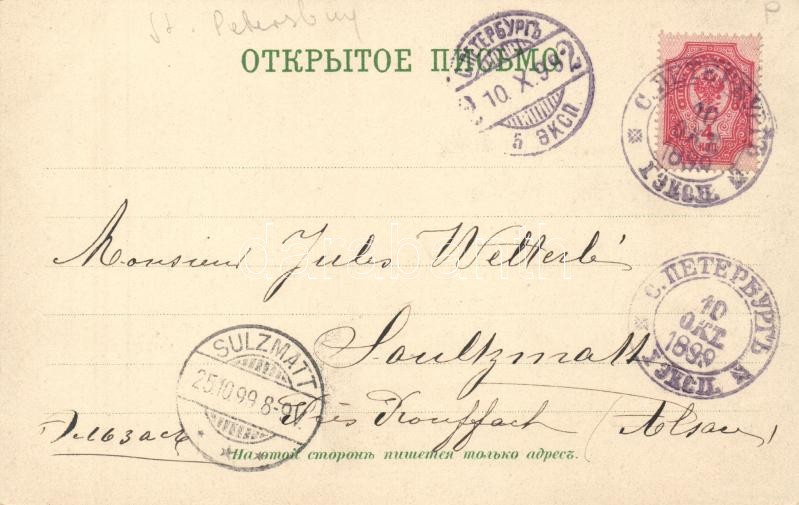 St. Petersburg
P
ОТКРЫТОЕ ПИСЬМО.
С. ПЕТЕРБУРГЪ 2
10. X. 99
5 ЭКСП.
С. ПЕТЕРБУРГЪ
10 ОКТ 1899
1 ЭКСП.
4
КОП
Monsieur Jules Wetterlé
С. ПЕТЕРБУРГЪ
10
ОКТ.
1899
1 ЭКСП.
Soultzmatt
SULZMATT
25.10.99 8-9V.
Près Rouffach (Alsace)
Эльзасъ
На этой сторонѣ пишется только адресъ.
darabanth